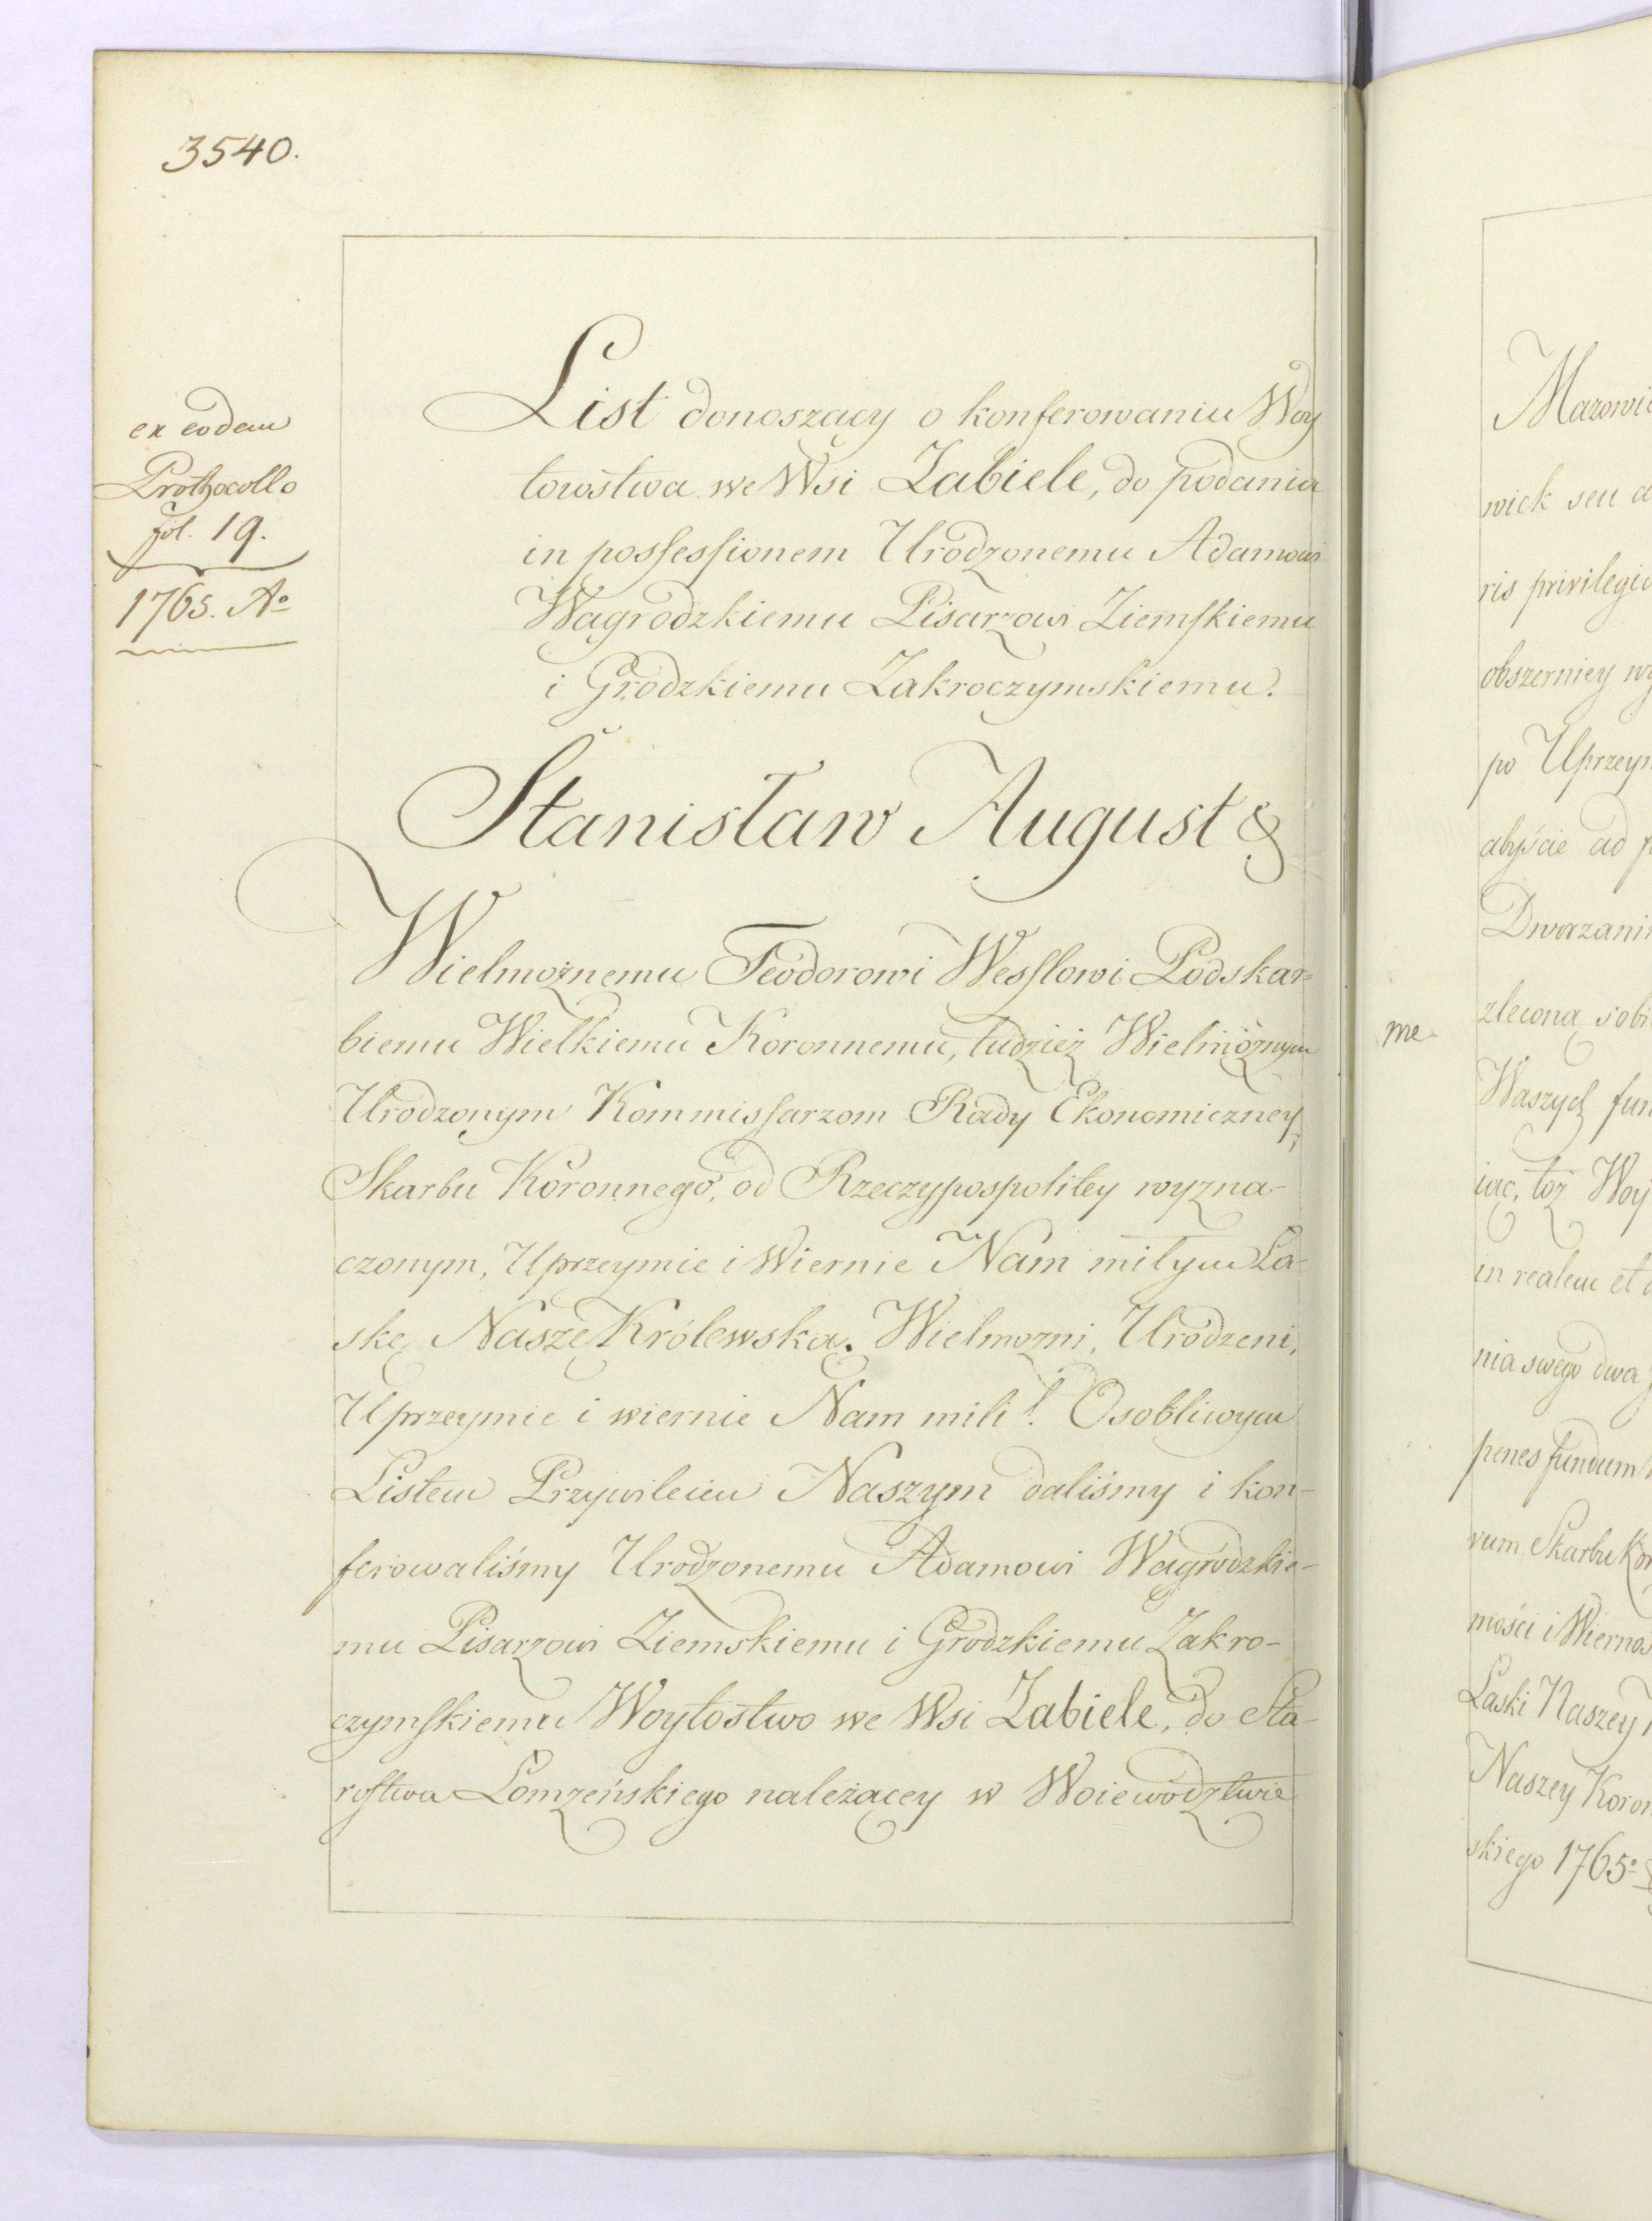 3540.
ex eodem
Prothocollo
fol. 19.
1765. Aº
List donoszący o konferowaniu Woy
towstwa we Wsi Zabiele, do podania
in possessionem Urodzonemu Adamowi
Wagrodzkiemu Pisarzowi Ziemskiemu
i Grodzkiemu Zakroczymskiemu.
Stanisław August &
Wielmożnemu Teodorowi Wesslowi Podskar=
biemu Wielkiemu Koronnemu, tudzież Wielmożnym
Urodzonym Kommissarzom Rady Ekonomiczney,
Skarbu Koronnego, od Rzeczypospolitey wyzna-
czonym, Uprzeymie i Wiernie Nam miłym Ła-
skę Naszę Królewską. Wielmożni, Urodzeni,
Uprzeymie i wiernie Nam mili! Osobliwym
Listem Przywileiem Naszym daliśmy i kon-
ferowaliśmy Urodzonemu Adamowi Wagrodzkie-
mu Pisarzowi Ziemskiemu i Grodzkiemu Zakro-
czymskiemu Woytostwo we Wsi Zabiele, do Sta-
rostwa Łomżeńskiego należącey w Woiewodztwie
me
wick seu
ris
obszerniey
po
abyście ad
zleconą
Waszych
iąc, toż
in realem et
nia swego dwa
penes fundum
rum Skarbu
mości i
Łaski Naszey
Naszey
skiego 1765º